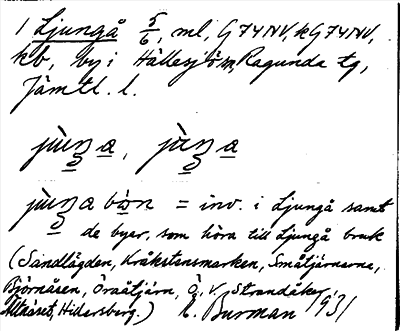 1 Ljungå 5/6, ml, G 74 NV, k G 74 NV,
kb, by i Hällesjö sn, Ragunda tg,
Jämtl. l.
= inv. i Ljungå samt
de byar, som höra till Ljungå bruk
(Sandlägden, Kråkstensmarken, Småtjärnarna,
Björnåsen, Öraåtjärn, Ö. V. Strandåker,
Altaåset, Hidersberg.) E. Burman 1931